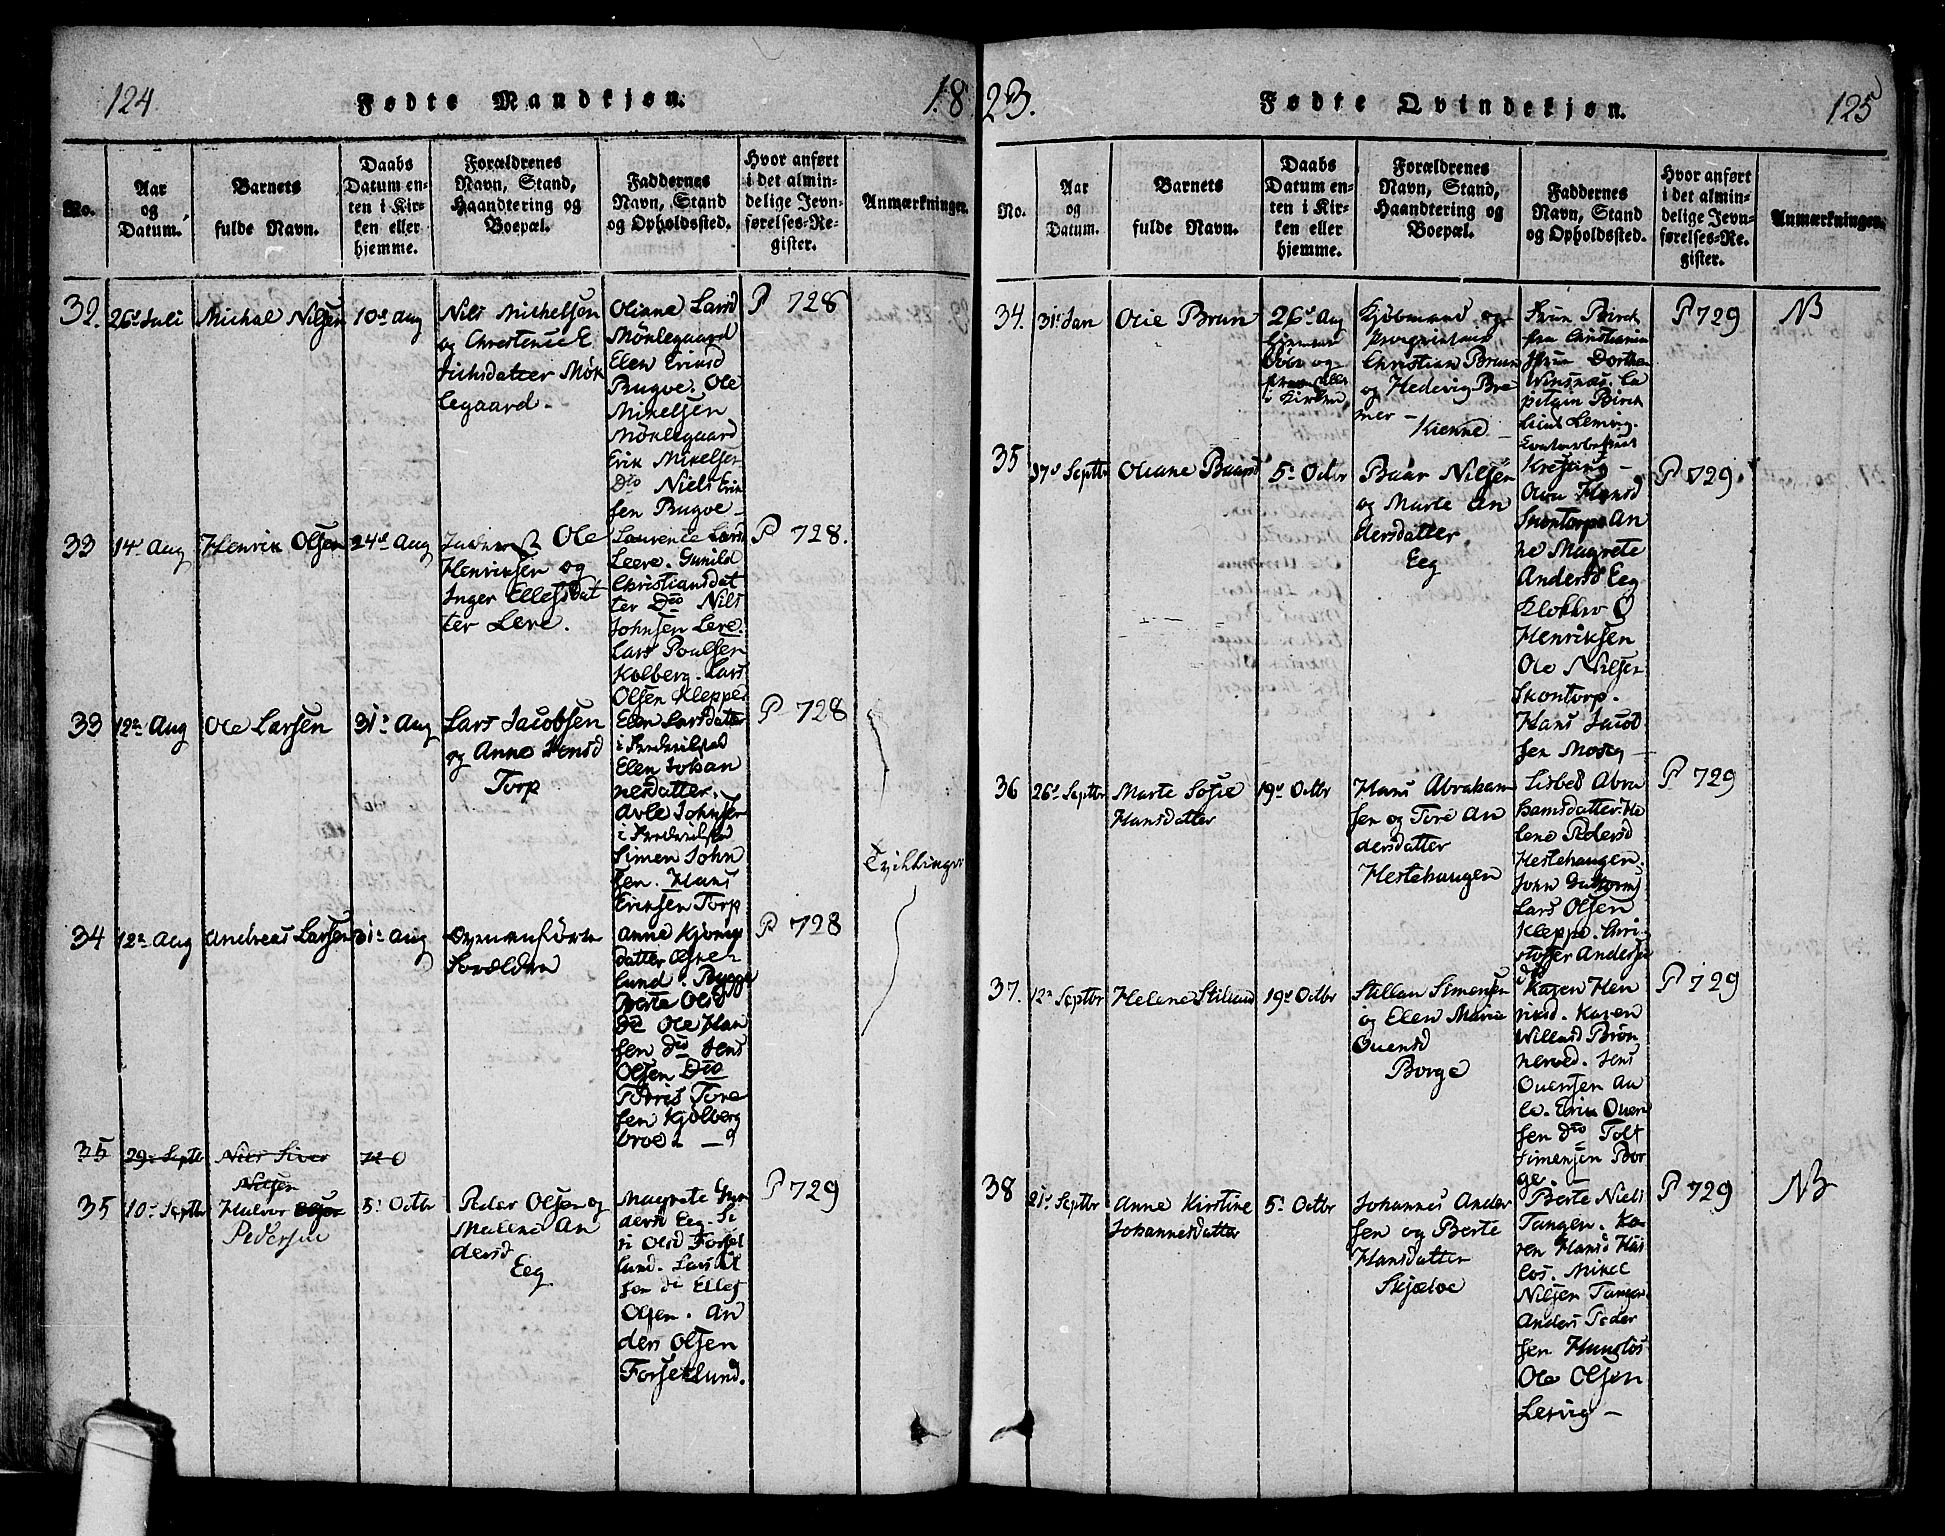 124.
Fødte Mandkjøn.
18
No.
Aar
og
Datum.
Barnets
fulde Navn.
Daabs
Datum en-
ten i Kir-
ken eller
hjemme.
Forældrenes
Navn, Stand,
Haandtering og
Boepæl.
Faddernes
Navn, Stand
og Opholdssted.
Hvor anført
i det almin-
delige Jevn-
førelses-Re-
gister.
Anmærkninger.
32.
26d Juli
Michal Nilsen
10d Aug
Nils Michelsen
og Christense E
richsdatter Møk
legaard.
Oliane Larsd
Möklegaard
Elen Eriksd
Bugve. Ole
Mikelsen
Möklegaard
Erik Mikelsen
Do Niels Erik
sen Bugve
P 728
33
14d Aug
Henrik Olsen
24d Aug
Ole
Henriksen og
Inger Ellefsdat
ter Lere.
Laurence Larsd
Leere. Gunild
Christiansdat
ter Do Nils
Johnsen Lere.
Lars Poulsen
Kolberg. Lars
Olsen Kleppe
P 728.
33
12te Aug
Ole Larsen
31te Aug
Lars Jacobsen
og Anne Jensd
Torp
Elen Larsdatter
i Frederikstad
Elen Johan
nesdatter.
Avle Johnsen
i Frederikstad
Simen John
sen. Hans
Eriksen Torp
P 728
Tvillinger
34
12te Aug
Andreas Larsen
31te Aug
Ovenanförte
Forældre
Anne
datter
lund. Bygge
Berte Olsd
do Ole Han
sen do Jens
Olsen Do
Tore
sen Kjölberg
broe
P 728
35
29de Septbr
Nils Siver
Nilsen
35
10de Septbr
Halvor Olsen
Pedersen
5te Octbr
Peder Olsen og
Malene An
dersd
Eeg
Magrete An
dersd Eeg. Si
ri Olsd Forsæt
lund. Lars Ol
sen do Ellef
Olsen. An
ders Olsen
Forsetlund.
P 729
23.
Fødte Qvindekjøn.
125
No.
Aar
og
Datum.
Barnets
fulde Navn.
Daabs
Datum en-
ten i Kir-
ken eller
hjemme.
Forældrenes
Navn, Stand,
Haandtering og
Boepæl.
Faddernes
Navn, Stand
og Opholdssted.
Hvor anført
i det almin-
delige Jevn-
førelses-Re-
gister.
Anmærkninger.
34.
31te Jan
Olie Brun
26d Aug
Hjemme
Döbt og
i Kirken
Kjöbmand og
Proprietair
Christian Bruun
og Hedevig Bre
mer
Kienne
Frue Birch
fra Christiania
Frue Dorthea
Winsnæs. Ca
pitain Birch
P 729
NB
35
17d Septbr
Oliane Baarsd
5te Octbr
Baar Nilsen
og Marte An
dersdatter
Eeg
Kresting
Olea Hansd
Skontorp An
ne Magrete
Andersd Eeg
Klokker O
Henriksen
Ole Nilsen
Skontorp.
Hans Jacob
sen Moseg
P 729.
36
26d Septbr
Marte Sofie
Hansdatter
19d Octbr
Hans Abraham
sen og Tore An
dersdatter
Hestehaugen
Lisbed Abra
hamsdatter. He
lene Pedersd
Hestehaugen.
John Guttorms
Lars Olsen
Kleppe. Chri
stofer Andersen
do
P 729
37.
12te Septbr
Helene Stillansd
19d Octbr
Stillan Simensen
og Elen Marie
Ouensd
Borge
Karen Hen
riksd. Karen
Willumsd Brön
nerød. Jens
Ouensen Au
le. Erik Ouen
sen do Tolf
Simensen Bor
ge.
P 729
38
21de Septbr
Anne Kirstine
Johannesdatter
5te Octbr
Johannes Ander
sen og Berte
Hansdatter
Skjæloe
Berte Niels
Tangen. Ka
ren Hansd Hus
løs. Mikel
Nilsen Tangen
Anders Peder
sen Hunsløs
Ole Olsen
Lervig
P 729
NB